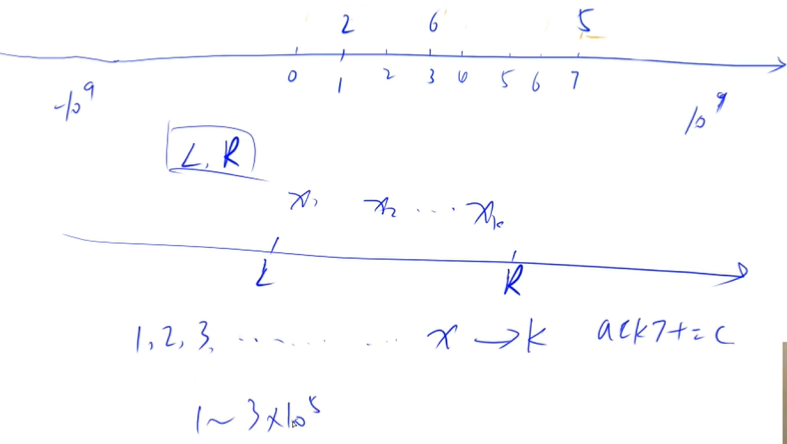 2 6 5
0 1 2 3 4 5 6 7
-10⁹ 10⁹
L, R
x₁ x₂ ... xₖ
L R
1, 2, 3, ........... x → k a[k] += c
1 ~ 3×10⁵